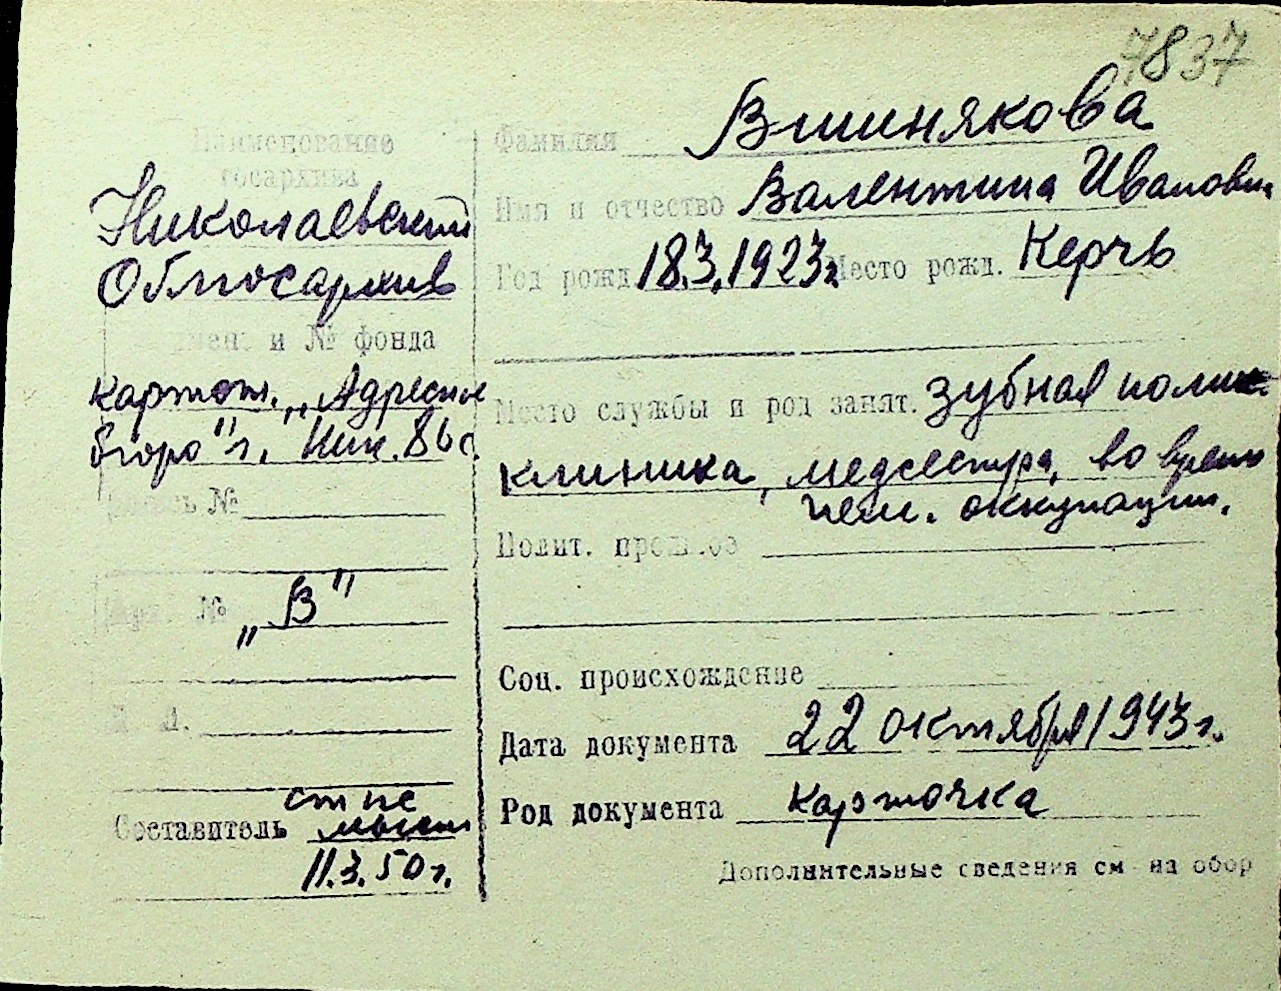 7837
Наименование
госархива
Николаевский
Облгосархив
и № фонда
картот. "Адресное
бюро" г. Ник. 86с.
Связь №
Арх. № "В"
Составитель
11.3.50г.
Фамилия Вишнякова
Имя и отчество Валентина Ивановн
Год рожд. 18.3.1923г Место рожд. Керчь
Место службы и род занят. зубная поли-
клиника, медсестра, во время
нем. оккупации.
Полит. прошлое
Соц. происхождение
Дата документа 22 октября 1943г.
Род документа карточка
Дополнительные сведения см на обор